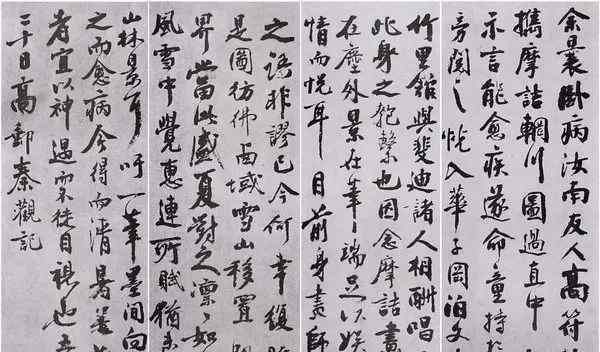 余曩卧病汝南友人高符
攜摩詰輞川圖過直中
示言能愈疾遂命童持於
旁閱之恍入華子岡泊文
竹里館與斐迪諸人相酬唱
此身之匏繫也因念摩詰畫
在塵外景在筆端足以娛
情而悅耳目前身畫師
之語非謬已今何幸復
是圖彷彿西域雪山移置眼
界當此盛夏對之凜凜如
風雪中覺惠連所賦猶未
山林景耳吁一筆墨間向
之而愈病今得而清暑蓋
者宜以神遇而不徒目視也五
二十日高郵秦觀記